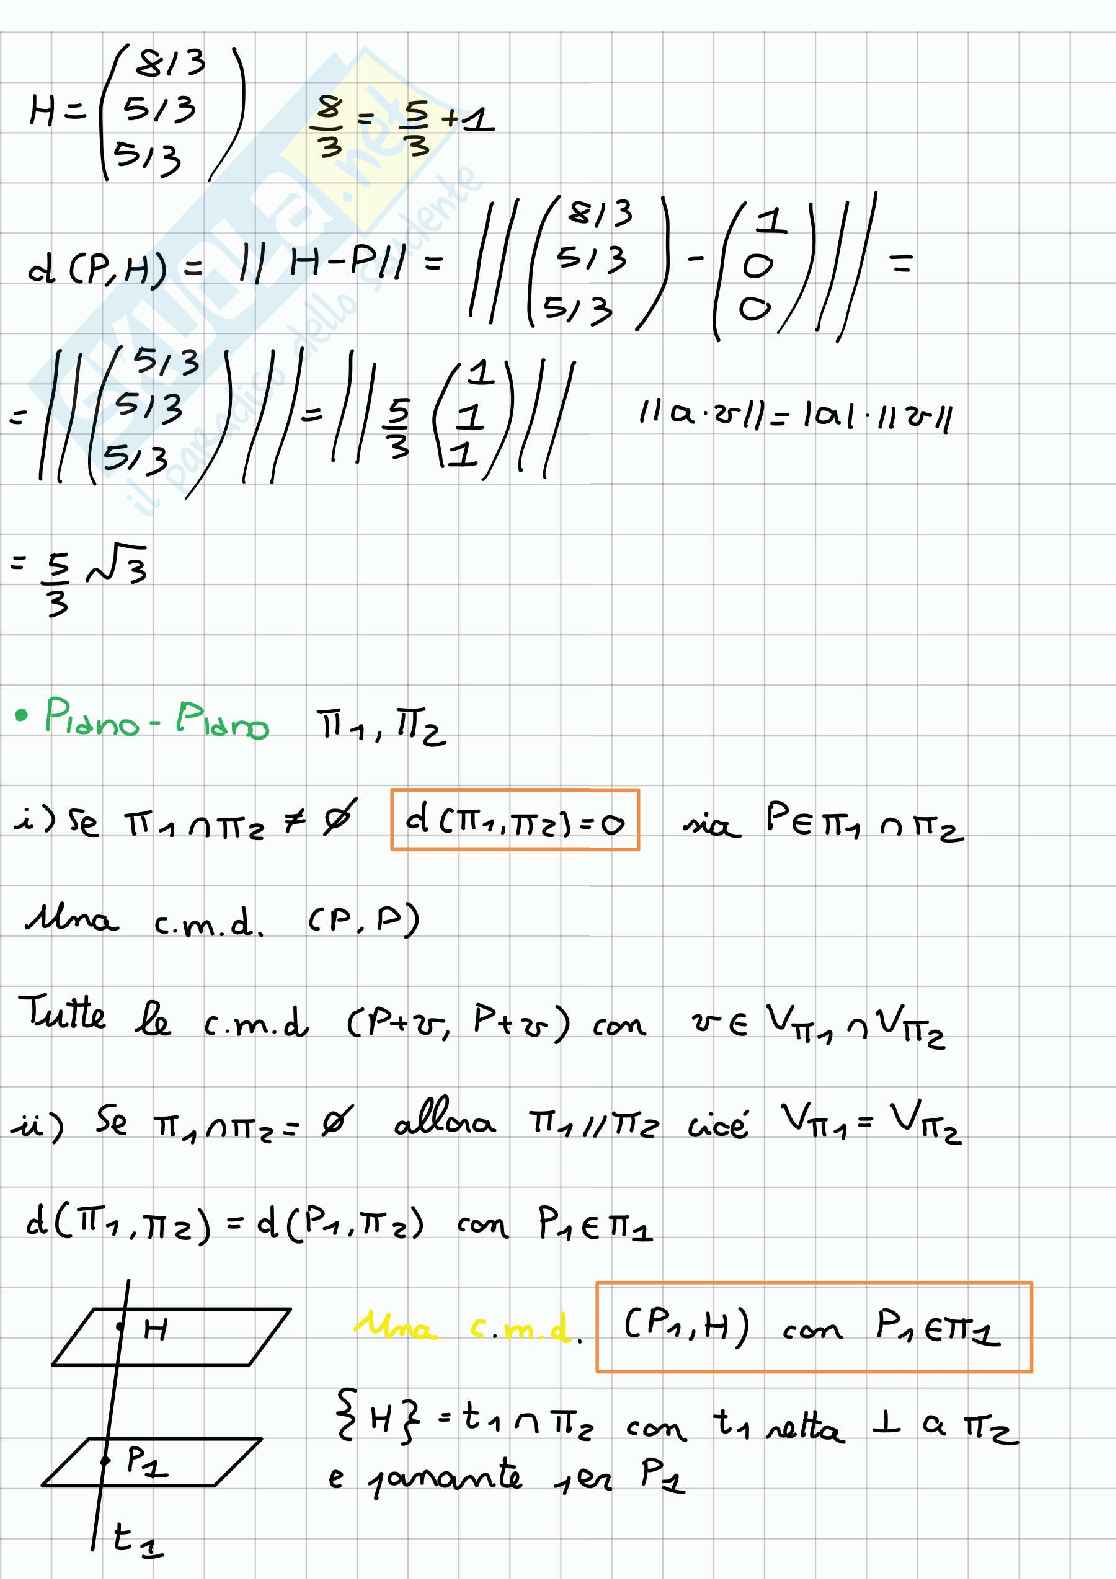 H = (8/3 5/3 5/3) 8/3 = 5/3 + 1
d(P,H) = || H-P || = || (8/3 5/3 5/3) - (1 0 0) || =
= || (5/3 5/3 5/3) || = || 5/3 (1 1 1) || ||a·v|| = |a|·||v||
= 5/3 √3
• Piano - Piano π1, π2
i) Se π1∩π2 ≠ ∅ d(π1,π2)=0 sia P∈π1∩π2
Una c.m.d. (P,P)
Tutte le c.m.d (P+v, P+v) con v∈ Vπ1∩Vπ2
ii) Se π1∩π2 = ∅ allora π1//π2 cioé Vπ1 = Vπ2
d(π1,π2) = d(P1,π2) con P1∈π1
H
Una c.m.d. (P1,H) con P1∈π1
{H} = t1∩π2 con t1 retta ⊥ a π2
e passante per P1
P1
t1
SKUOLA.net
il paradiso dello studente